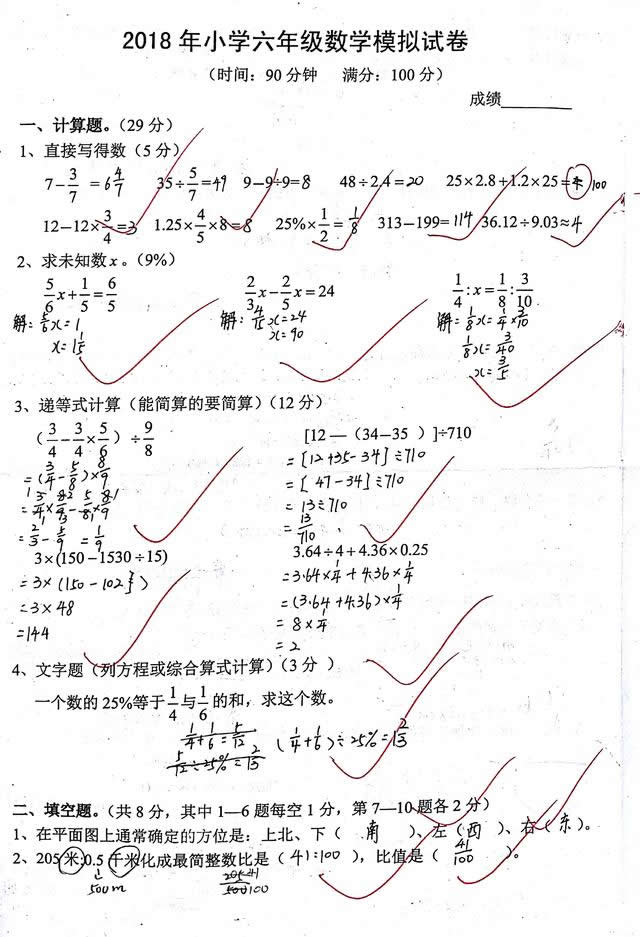 2018 年小学六年级数学模拟试卷
（时间：90 分钟 满分：100 分）
成绩
一、计算题。（29 分）
1、直接写得数（5 分）
7−3/7 =6 4/7 35÷5/7=49 9−9÷9=8 48÷2.4=20 25×2.8+1.2×25= 100
12−12×3/4=3 1.25×4/5×8=8 25%×1/2=1/8 313−199=114 36.12÷9.03≈4
2、求未知数 x 。（9%）
5/6x+1/5=6/5 2/3x−2/5x=24 1/4:x=1/8:3/10
解：5/6x=1 解：4/15x=24 解：1/8x=1/4×3/10
x=1 1/5 x=90 1/8x=3/40
x=3/5
3、递等式计算（能简算的要简算）（12 分）
（3/4−3/4×5/6）÷9/8 [12 —（34—35 ）]÷710
=(3/4-5/8)×8/9 =[12+35-34]÷710
=3/4×8/9-5/8×8/9 =[47-34]÷710
=2/3-5/9=1/9 =13÷710
=13/710
3×(150−1530÷15) 3.64÷4+4.36×0.25
=3×(150-102) =3.64×1/4+4.36×1/4
=3×48 =(3.64+4.36)×1/4
=144 =8×1/4
=2
4、文字题（列方程或综合算式计算）（3 分 ）
一个数的 25%等于1/4与1/6的和，求这个数。
1/4+1/6=5/12 (1/4+1/6)÷25%=1 2/3
5/12÷25%=1 2/3
二、填空题。（共 8 分，其中 1—6 题每空 1 分，第 7—10 题各 2 分）
1、在平面图上通常确定的方位是：上北、下（ 南 ）、左（西 ）、右（东）。
2、205 米:0.5 千米化成最简整数比是（ 41:100 ），比值是（ 41/100 ）。
500m 205 41
500 100